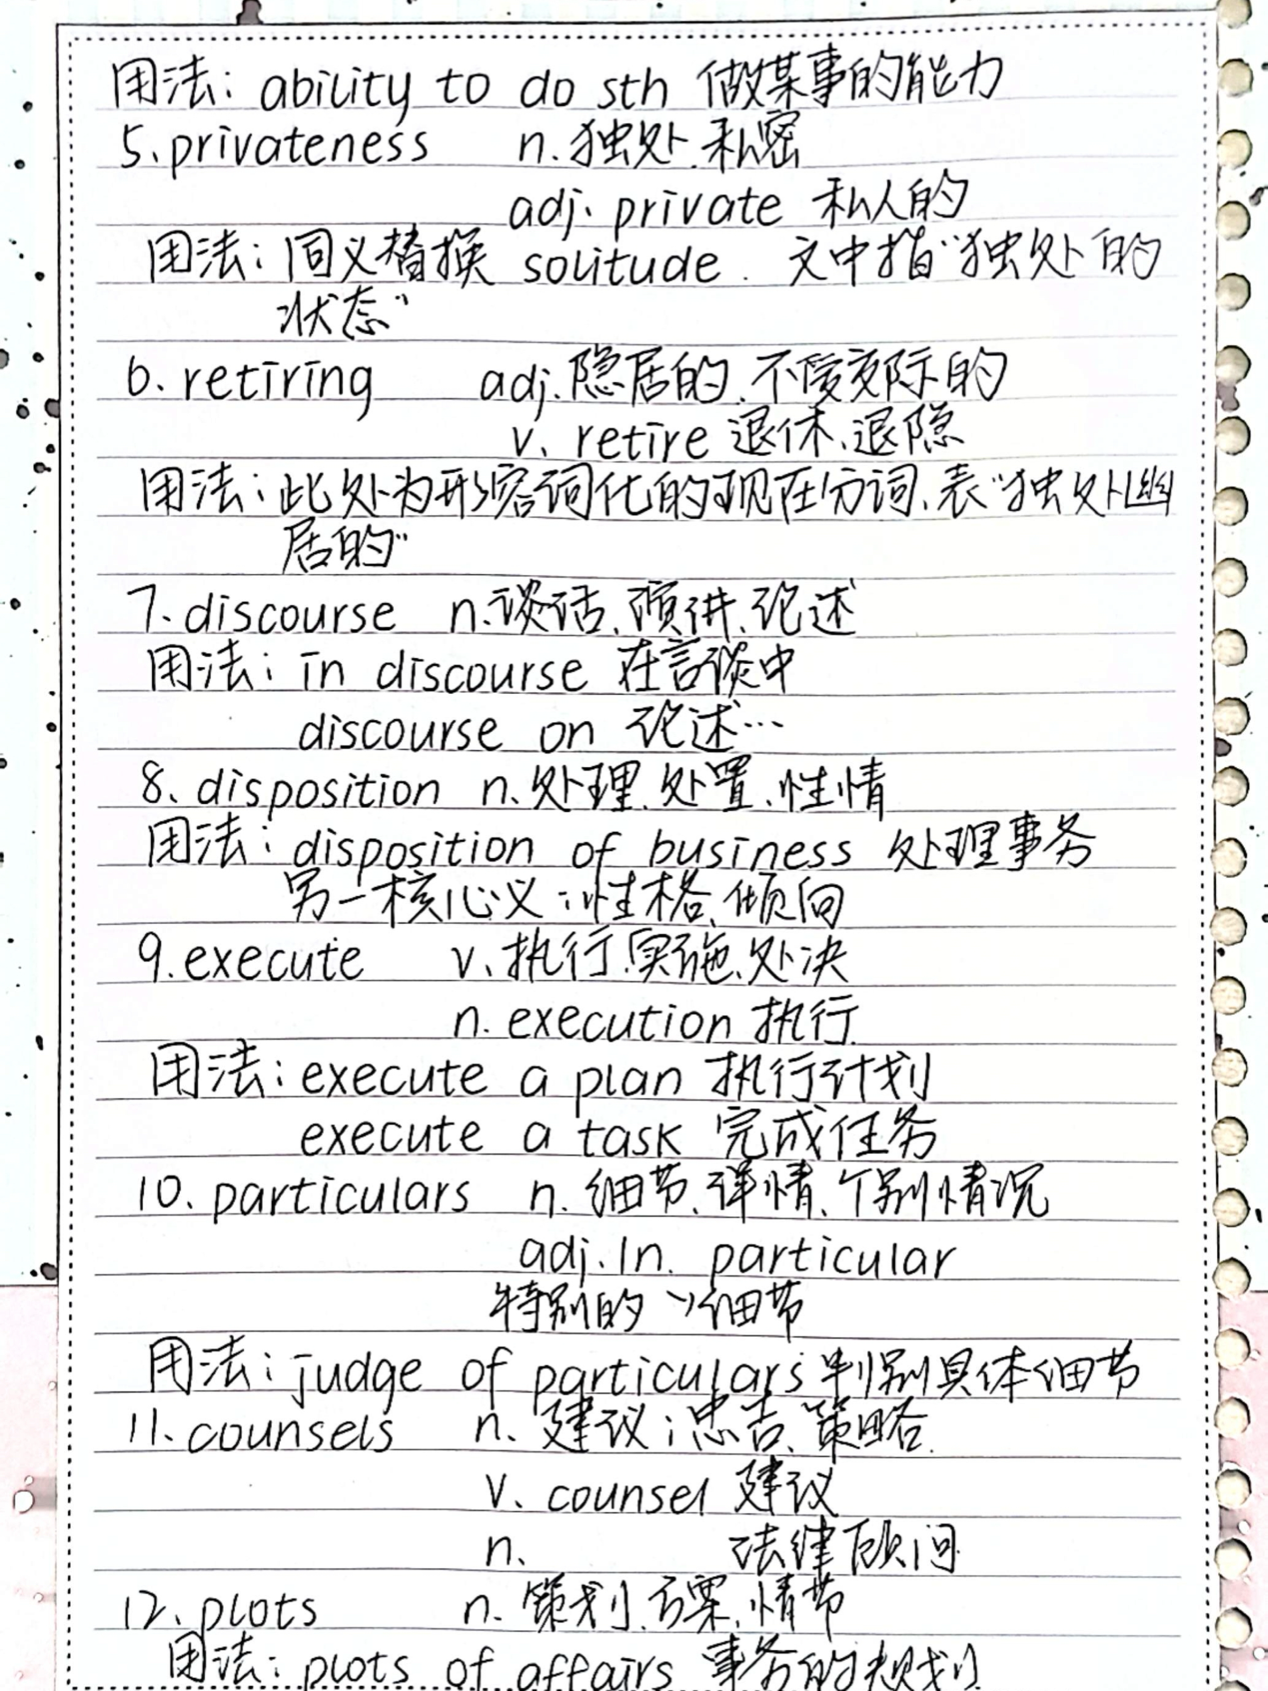 用法: ability to do sth 做某事的能力
5.privateness n.独处.私密
adj. private 私人的
用法: 同义替换 solitude. 文中指"独处的
状态"
6. retiring adj.隐居的.不爱交际的
v. retire 退休、退隐
用法: 此处为形容词化的现在分词、表"独处幽
居的"
7. discourse n.谈话、演讲、论述
用法: in discourse 在言谈中
discourse on 论述…
8、disposition n.处理、处置、性情
用法: disposition of business 处理事务
另一核心义:性格、倾向
9.execute v.执行.实施、处决
n. execution 执行
用法: execute a plan 执行计划
execute a task 完成任务
10. particulars n. 细节、详情、个别情况
adj. In. particular
特别的 >细节
用法: judge of particulars 判别具体细节
11. counsels n. 建议;忠告、策略.
v. counsel 建议
n. 法律顾问
12. plots n. 策划.方案.情节
用法: plots of affairs 事务的规划